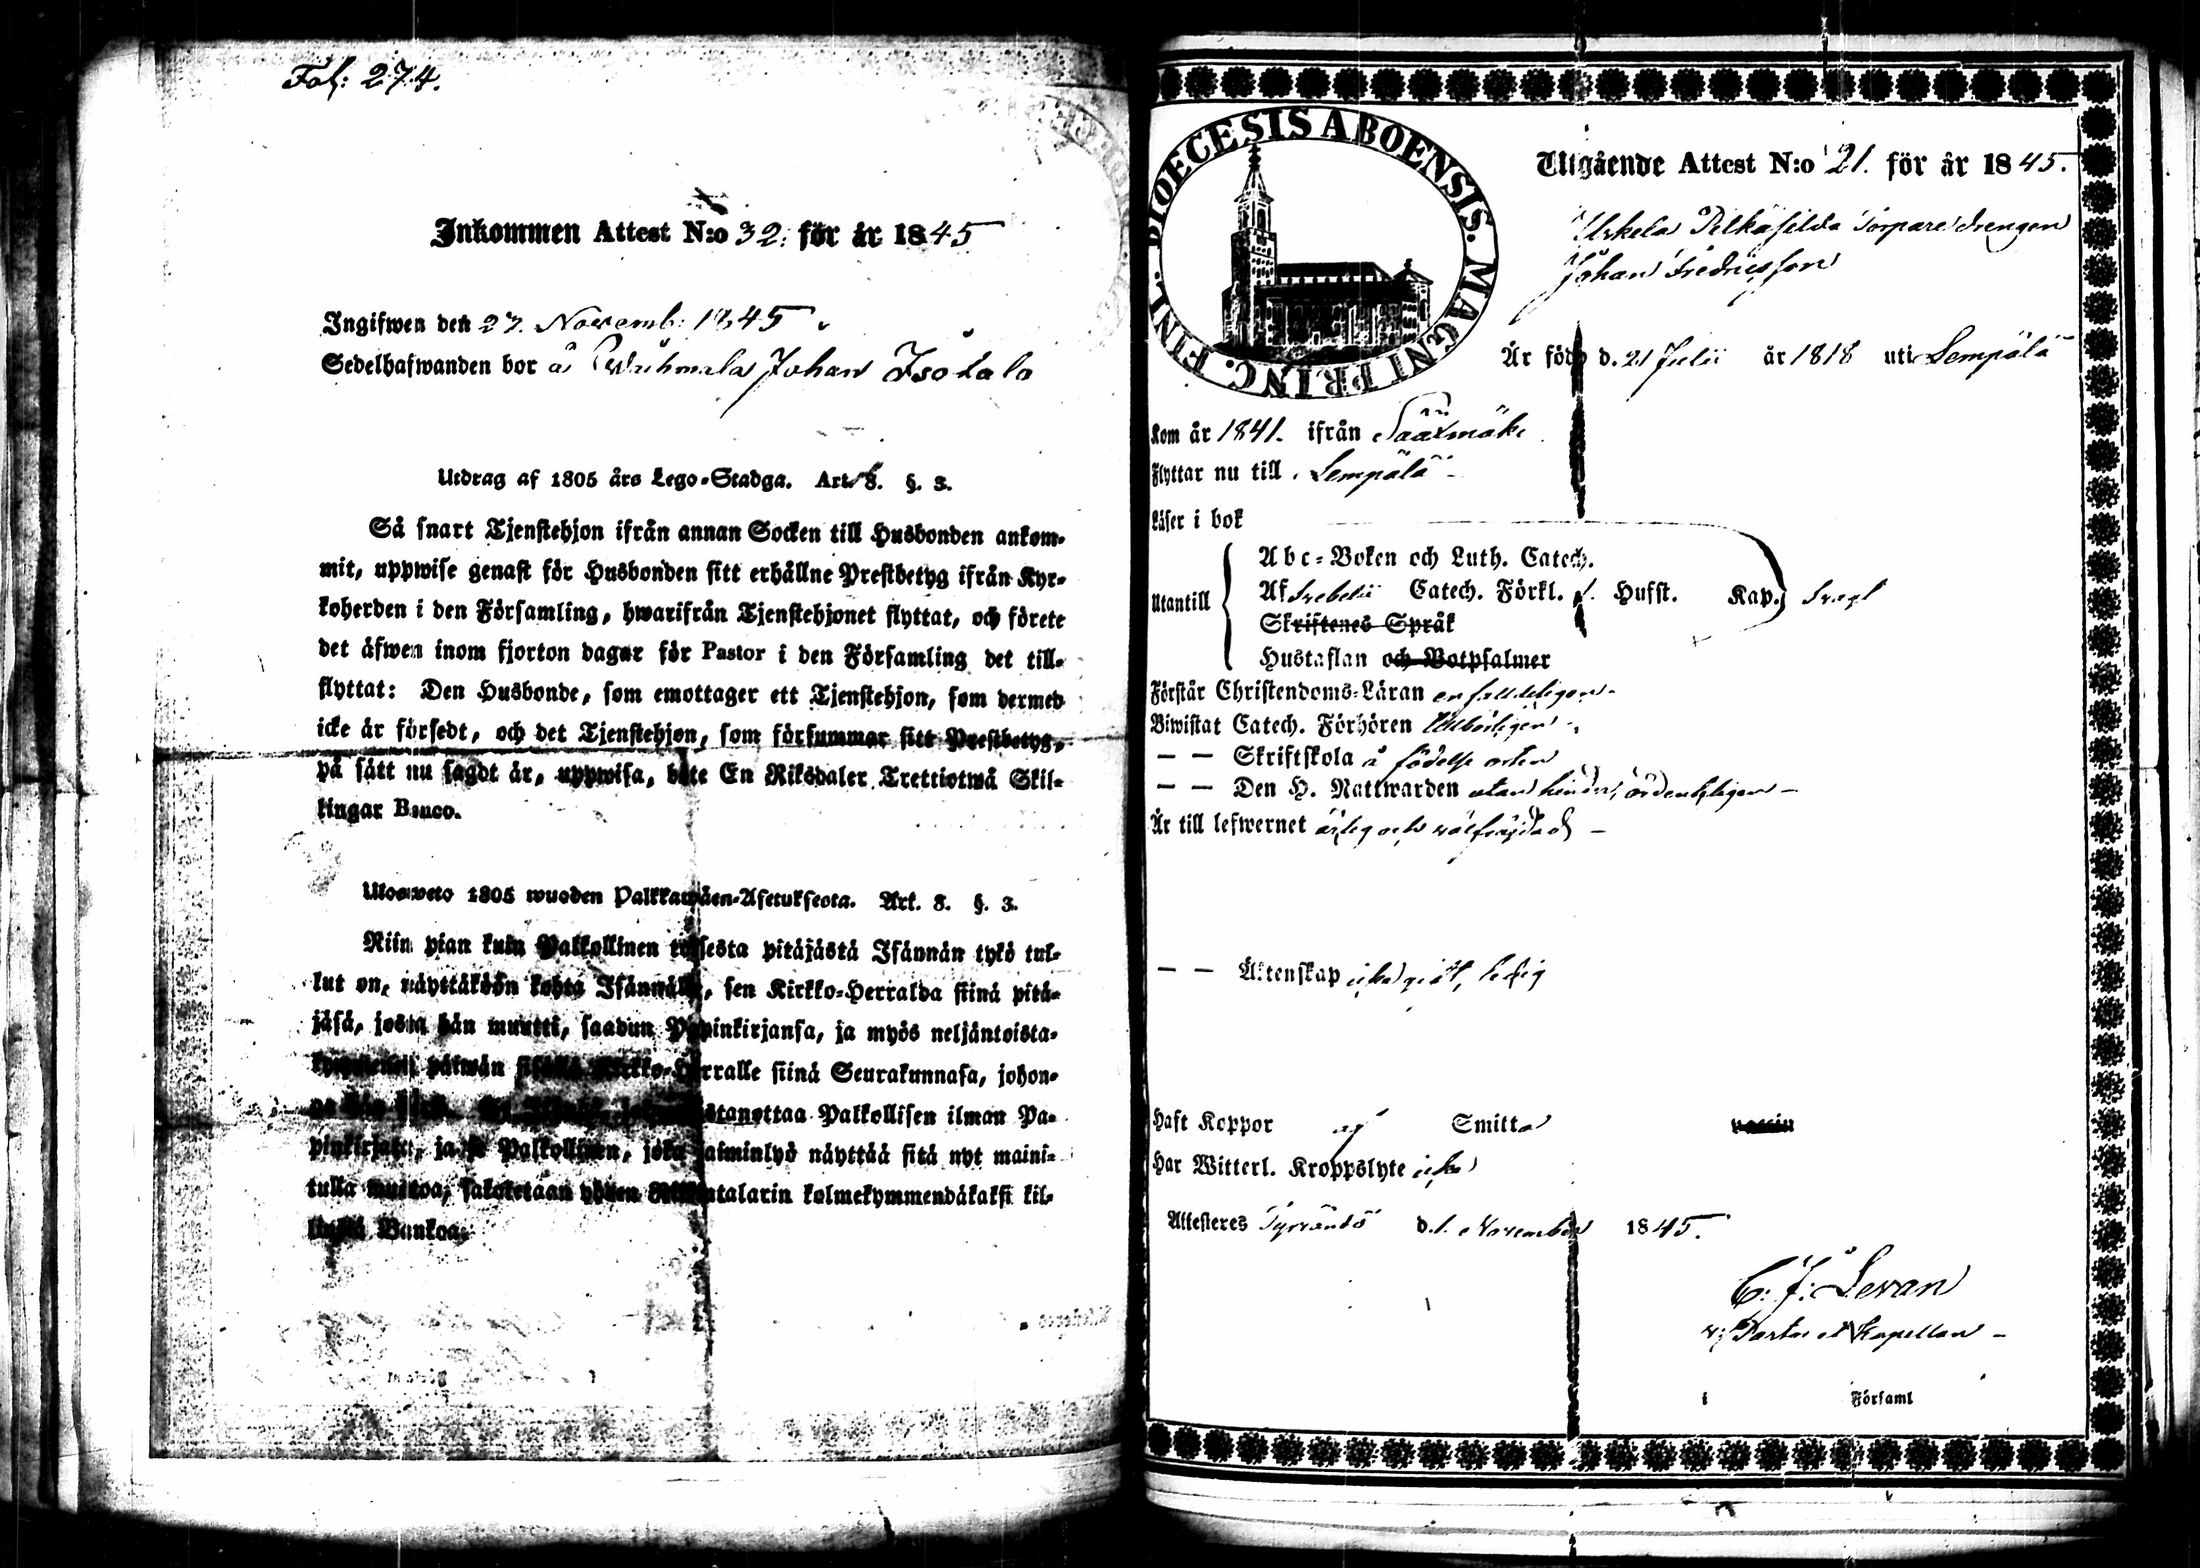 Fol: 274.
Inkommen Attest N:o 32. för år 1845
Ingifwen den 27. Novemb: 1845.
Sedelhafwanden bor å Wihmala Johan Isotalo
Utdrag af 1805 års Lego-Stadga. Art. 8. §. 3.
Så snart Tjenstehjon ifrån annan Socken till Husbonden ankom-
mit, uppwise genast för Husbonden sitt erhållne Prestbetyg ifrån Kyr-
koherden i den Församling, hwarifrån Tjenstehjonet flyttat, och förete
det äfwen inom fjorton dagar för Pastor i den Församling det till-
flyttat: Den Husbonde, som emottager ett Tjenstehjon, som dermed
icke är försedt, och det Tjenstehjon, som försummar sitt Prestbetyg,
på sätt nu sagdt är, uppwisa, böte En Riksdaler Trettiotwå Skil-
lingar Banco.
Ulosweto 1805 wuoden Palkkawäen-Asetuksesta. Art. 8. §. 3.
Niin pian kuin Palkollinen toisesta pitäjästä Isännän tykö tul-
lut on, näyttäköön kohta Isännälle, sen Kirkko-Herralda siinä pitä-
jäsä, josta hän muutti, saadun Papinkirjansa, ja myös neljäntoista-
päiwän Kirkko-Herralle siinä Seurakunnasa, johon-
wastanottaa Palkollisen ilman Pa-
pinkirjata, ja se Palkollinen, joka laiminlyö näyttää sitä nyt maini-
tulla muotoa, sakotetaan yhden Riksintalarin kolmekymmendäkaksi kil-
lingiä Bankoa.
DIOECESIS ABOENSIS. MAGNI PRINC. FINL.
Utgående Attest N:o 21. för år 1845.
Urkela Pelkäselda Torparedrengen
Johan Fredricsson
Är född d. 21 Julii år 1818 uti Lempälä
Kom år 1841. ifrån Sääxmäki
Flyttar nu till Lempälä
Läser i bok
Utantill
Abc-Boken och Luth. Catech.
Af Svebelii Catech. Förkl. Husst. Kap. svagt
Skriftenes Språk
Hustaflan och Botpsalmer
Förstår Christendoms-Läran enfalldeligen
Biwistat Catech. Förhören tillbörligen
— — Skriftskola å födelse orten
— — Den H. Nattwarden utan hinder, ordentligen
Är till lefwernet ärlig och wälfrejdad
— — Äktenskap icke gift, ledig
Haft Koppor ej Smitta vaccin
Har Witterl. Kroppslyte icke
Attesteres Tyrwändö d. 1. November 1845.
C. J. Levan
v: Pastor et Kapellan
i Församl